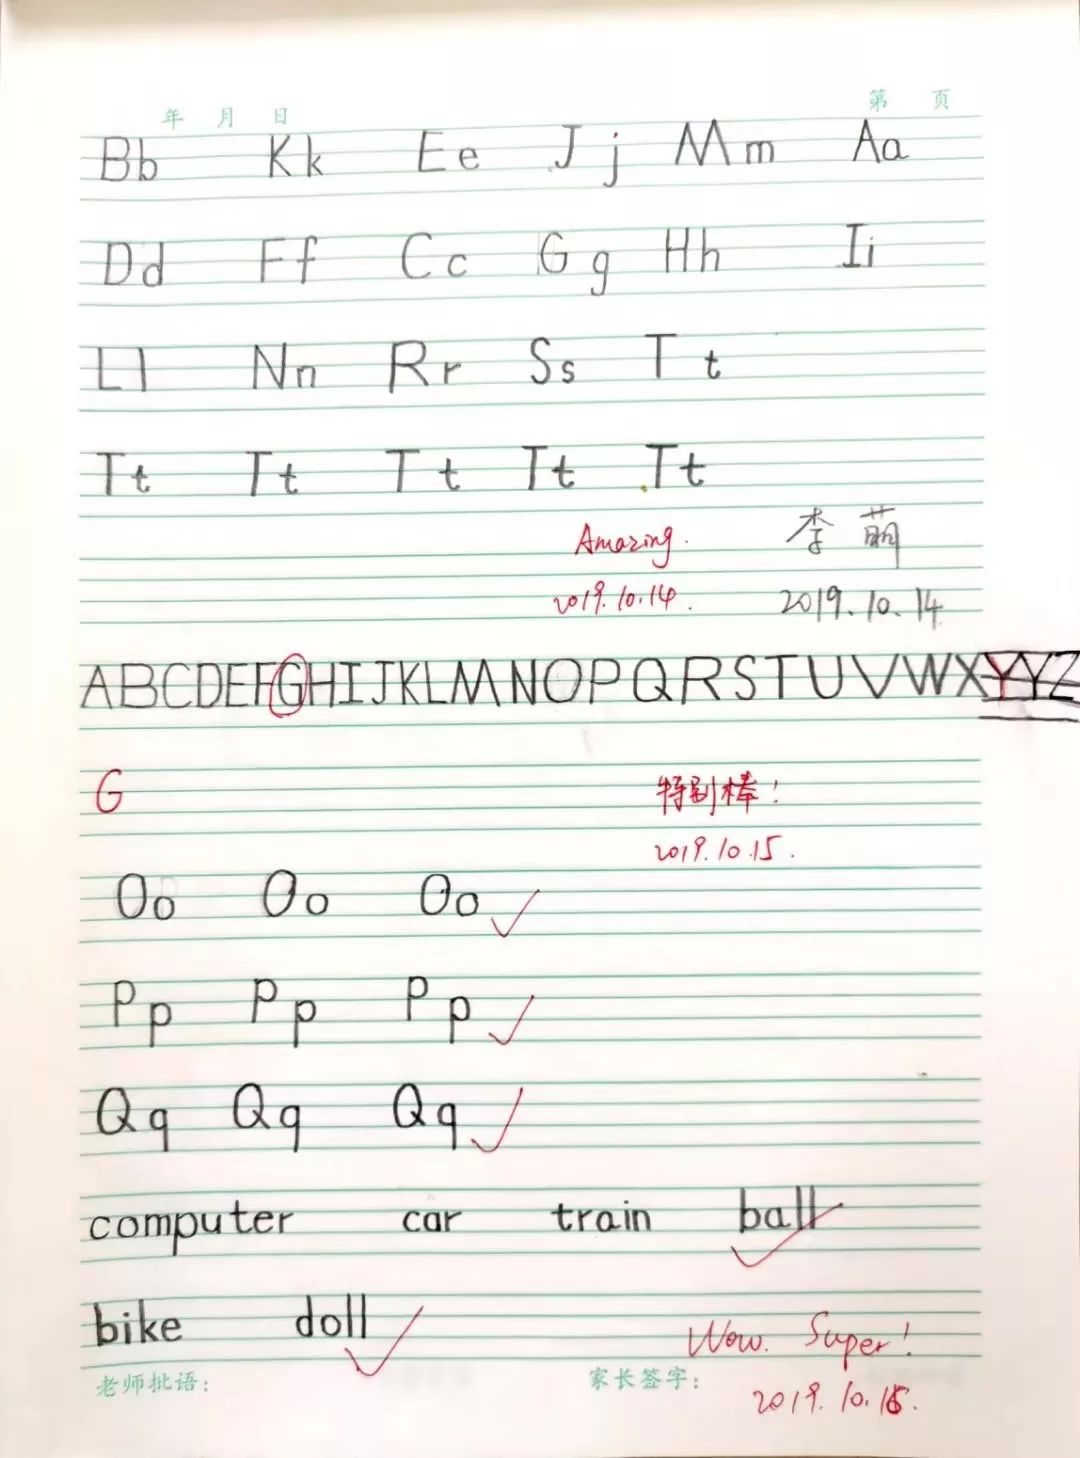 年 月 日 第 页
Bb Kk Ee Jj Mm Aa
Dd Ff Cc Gg Hh Ii
Ll Nn Rr Ss Tt
Tt Tt Tt Tt Tt
Amazing. 李萌
2019.10.14. 2019.10.14
ABCDEFGHIJKLMNOPQRSTUVWXYYZ
G 特别棒!
2019.10.15.
Oo Oo Oo
Pp Pp Pp
Qq Qq Qq
computer car train ball
bike doll
Wow. Super!
老师批语: 家长签字:
2019.10.16.